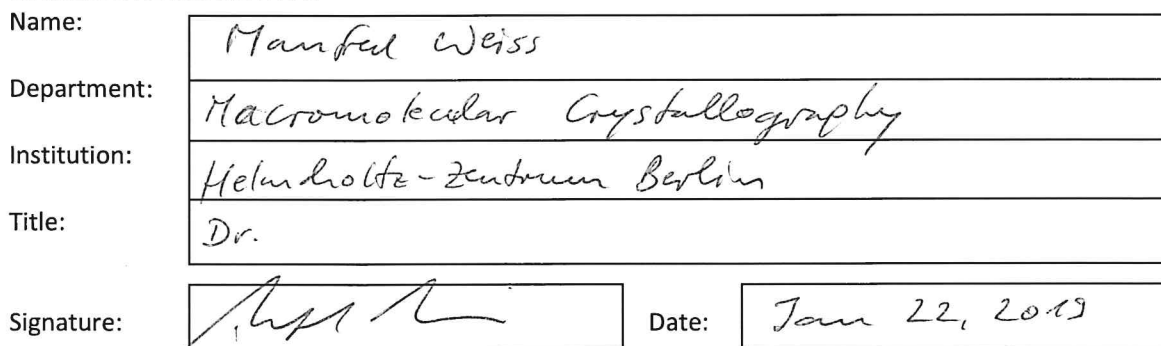 Name: Manfred Weiss
Department: Macromolecular Crystallography
Institution: Helmholtz-Zentrum Berlin
Title: Dr.
Signature: Date: Jan 22, 2019